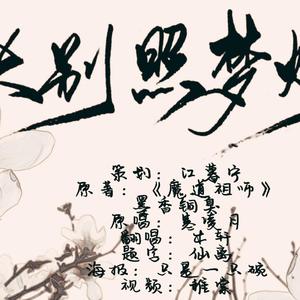 别照梦
策划:江暮宁
原著:《魔道祖师》
墨香铜
原唱: 月
翻唱: 轩
题字:仙
海报:只是一只碗
视频: 棠